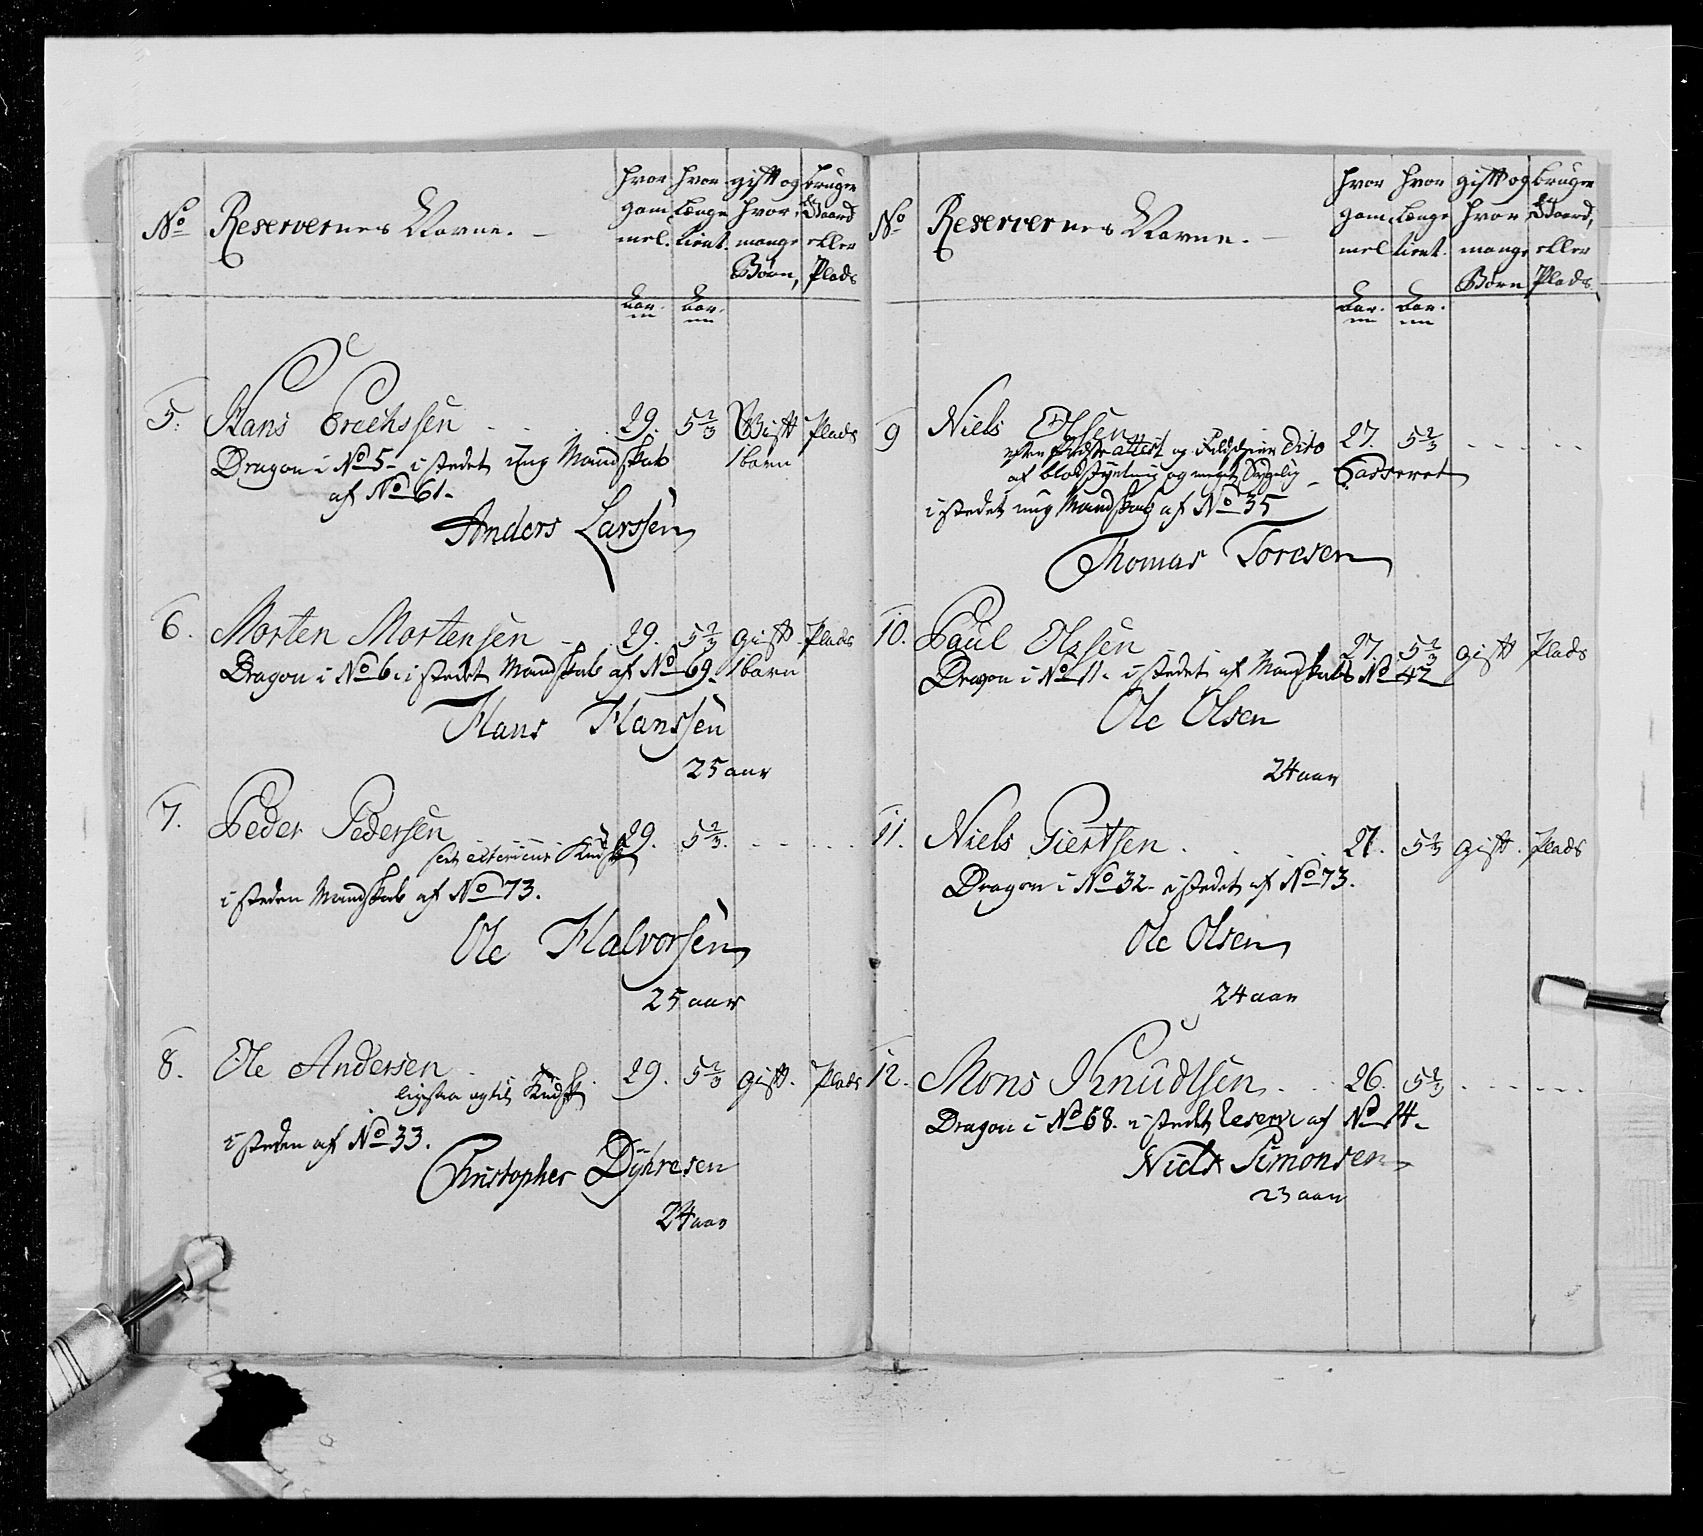 No
Reservernes Navne.
hvor gam mel.
hvor Længe tient.
gift og hvor mange Børn,
bruger Gaard eller Plads
Aar. Aar.
5. Hans Erechssen 29. 5 2/3 Gift Plads
Dragon i No 5 - i stedet ung Mandskab 1 barn
af No 61.
Anders Larssen
6. Morten Mortensen 29. 5 2/3 gift Plads
Dragon i No 6. i stedet Mandskab af No 69. 1 barn
Hans Hanssen
25 aar
7. Peder Pedersen 29. 5 2/3
Kudsk
i steden Mandskab af No 73.
Ole Halvorsen
25 aar
8. Ole Andersen 29. 5 2/3 gift. Plads
Kudsk
i steden af No 33.
Christopher Dÿhresen
24 aar
No
Reservernes Navne.
hvor gam mel
hvor Længe tient.
gift og hvor mange Børn
bruger Gaard, eller Plads
Aar. Aar.
9 Niels Olsen 27. 5 2/3
attest og Dito
af og meget Svagelig - Casseret
i stedet ung Mandskab af No 35
Thomas Toresen
10. Paul Olssen 27. 5 2/3 gift Plads
Dragon i No 11. i stedet af Mandskab No 42
Ole Olsen
24 aar
11. Niels Giertsen 27. 5 2/3 gift. Plads
Dragon i No 32. i stedet af No 73.
Ole Olsen
24 aar
12. Mons Knudtsen 26. 5 2/3
Dragon i No 68. i stedet Reserv af No 14.
Niels Simonsen
23 aar